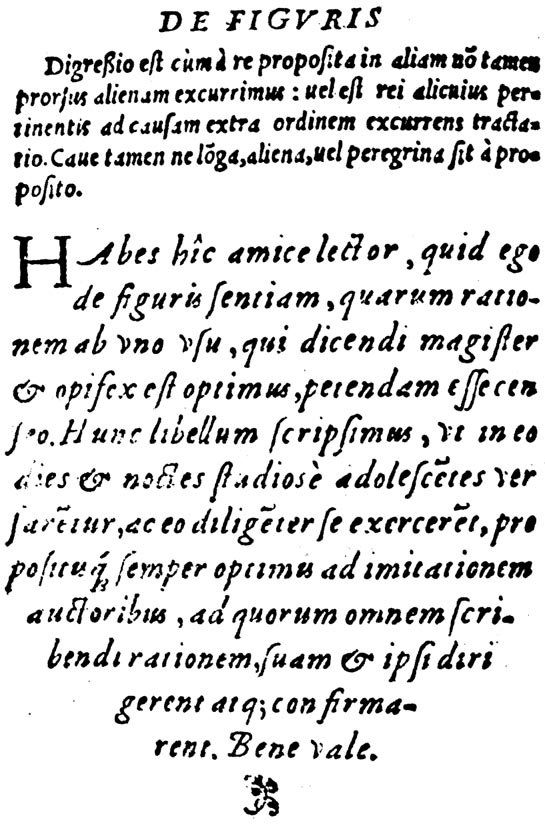 DE FIGVRIS
Digreßio est cùm à re proposita in aliam nō tamen
prorsus alienam excurrimus : uel est rei alicuius per-
tinentis ad causam extra ordinem excurrens tracta-
tio. Caue tamen ne lōga, aliena, uel peregrina sit à pro-
posito.
HAbes hîc amice lector, quid ego
de figuris sentiam, quarum ratio-
nem ab vno vsu, qui dicendi magister
& opifex est optimus, petendam esse cen
seo. Hunc libellum scripsimus, vt in eo
dies & noctes studiosè adolescẽtes ver
sarẽtur, ac eo diligẽter se exercerẽt, pro
posituq́; semper optimus ad imitationem
auctoribus, ad quorum omnem scri-
bendi rationem, suam & ipsi diri
gerent atq; confirma-
rent. Bene vale.